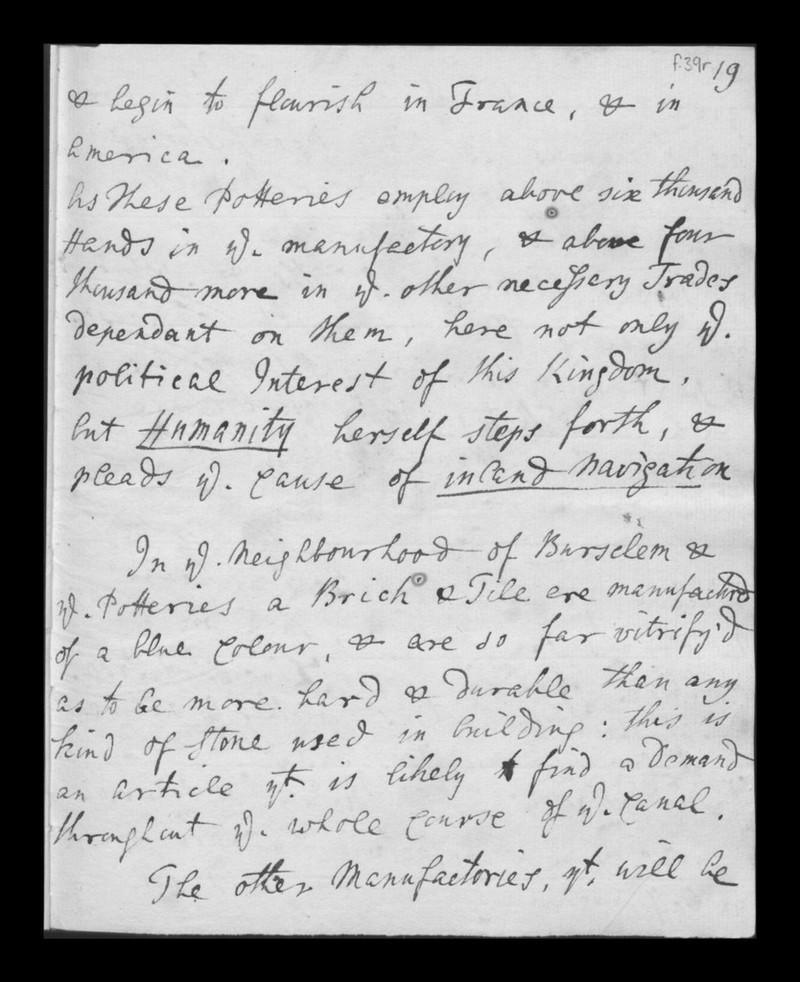 f.39r 19
& begin to flourish in France, & in
America.
As these Potteries employ above six thousand
Hands in ye. manufactory, & above four
thousand more in ye. other necessary Trades
dependant on them, here not only ye.
political Interest of this Kingdom,
but Humanity herself steps forth, &
pleads ye. Cause of inland Navigation
In ye. Neighbourhood of Burselem &
ye. Potteries a Brick & Tile are manufactred
of a blue Colour, & are so far vitrify'd
as to be more hard & durable than any
kind of Stone used in building: this is
an article yt. is likely t find a Demand
throughout ye. whole Course of ye. Canal.
The other Manufactories, yt. will be